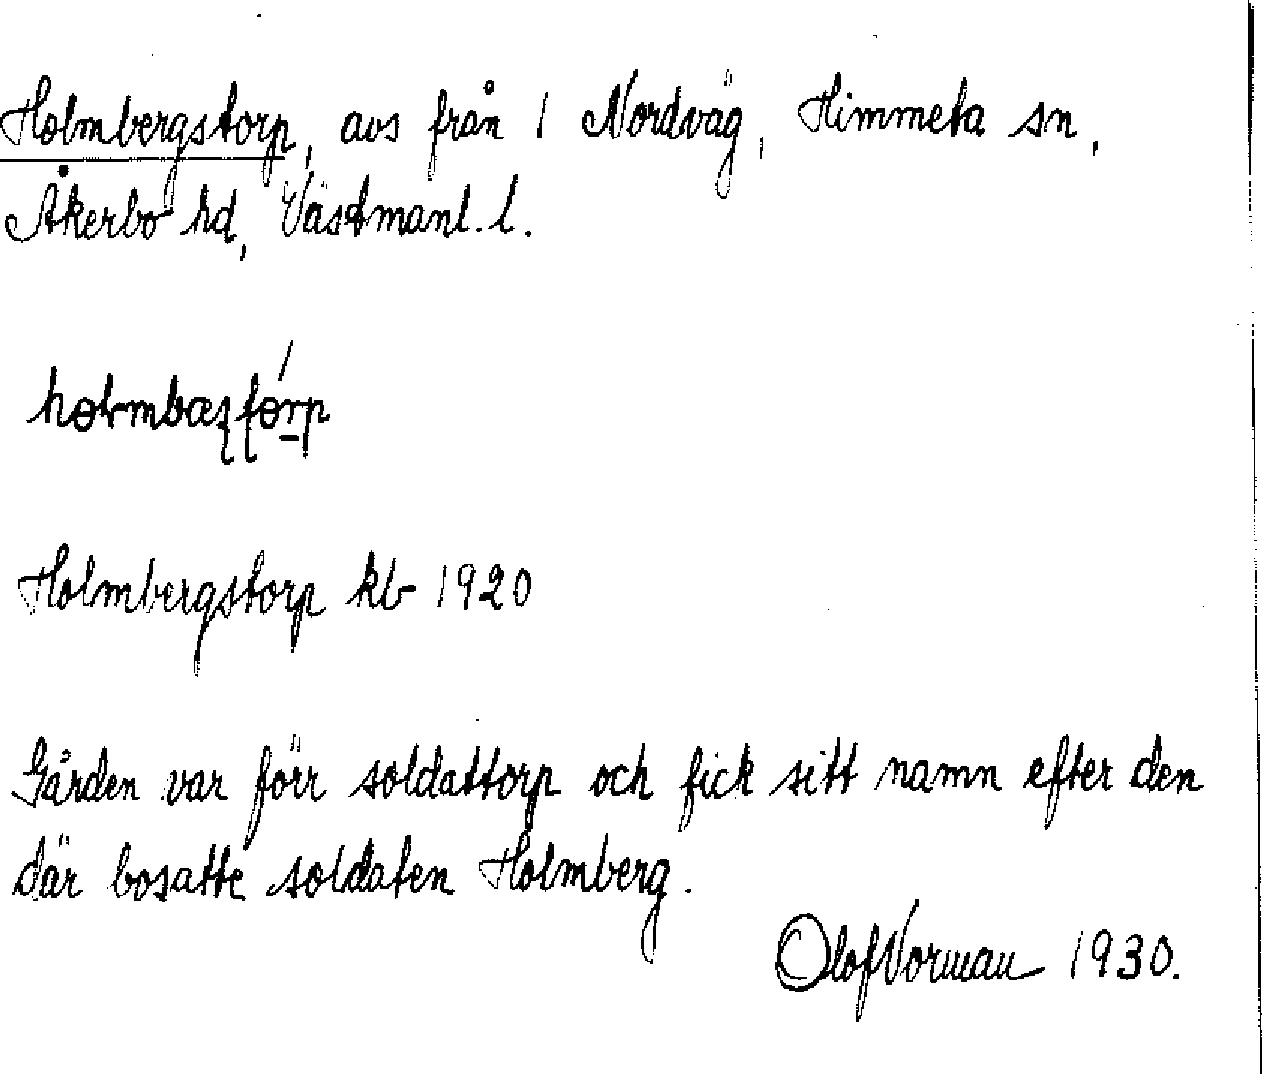 Holmbergstorp, avs från 1 Nordväg, Himmeta sn,
Åkerbo hd, Västmanl. l.
Holmbergstorp kb 1920
Gården var förr soldattorp och fick sitt namn efter den
där bosatte soldaten Holmberg.
Olof Vorman 1930.